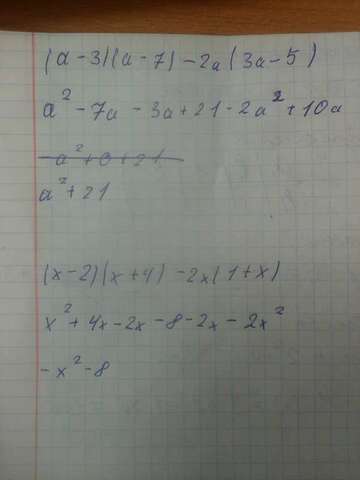 (a - 3)(a - 7) - 2a (3a - 5)
a² - 7a - 3a + 21 - 2a² + 10a
- a² + 0 + 21
a² + 21
(x - 2)(x + 4) - 2x (1 + x)
x² + 4x - 2x - 8 - 2x - 2x²
- x² - 8